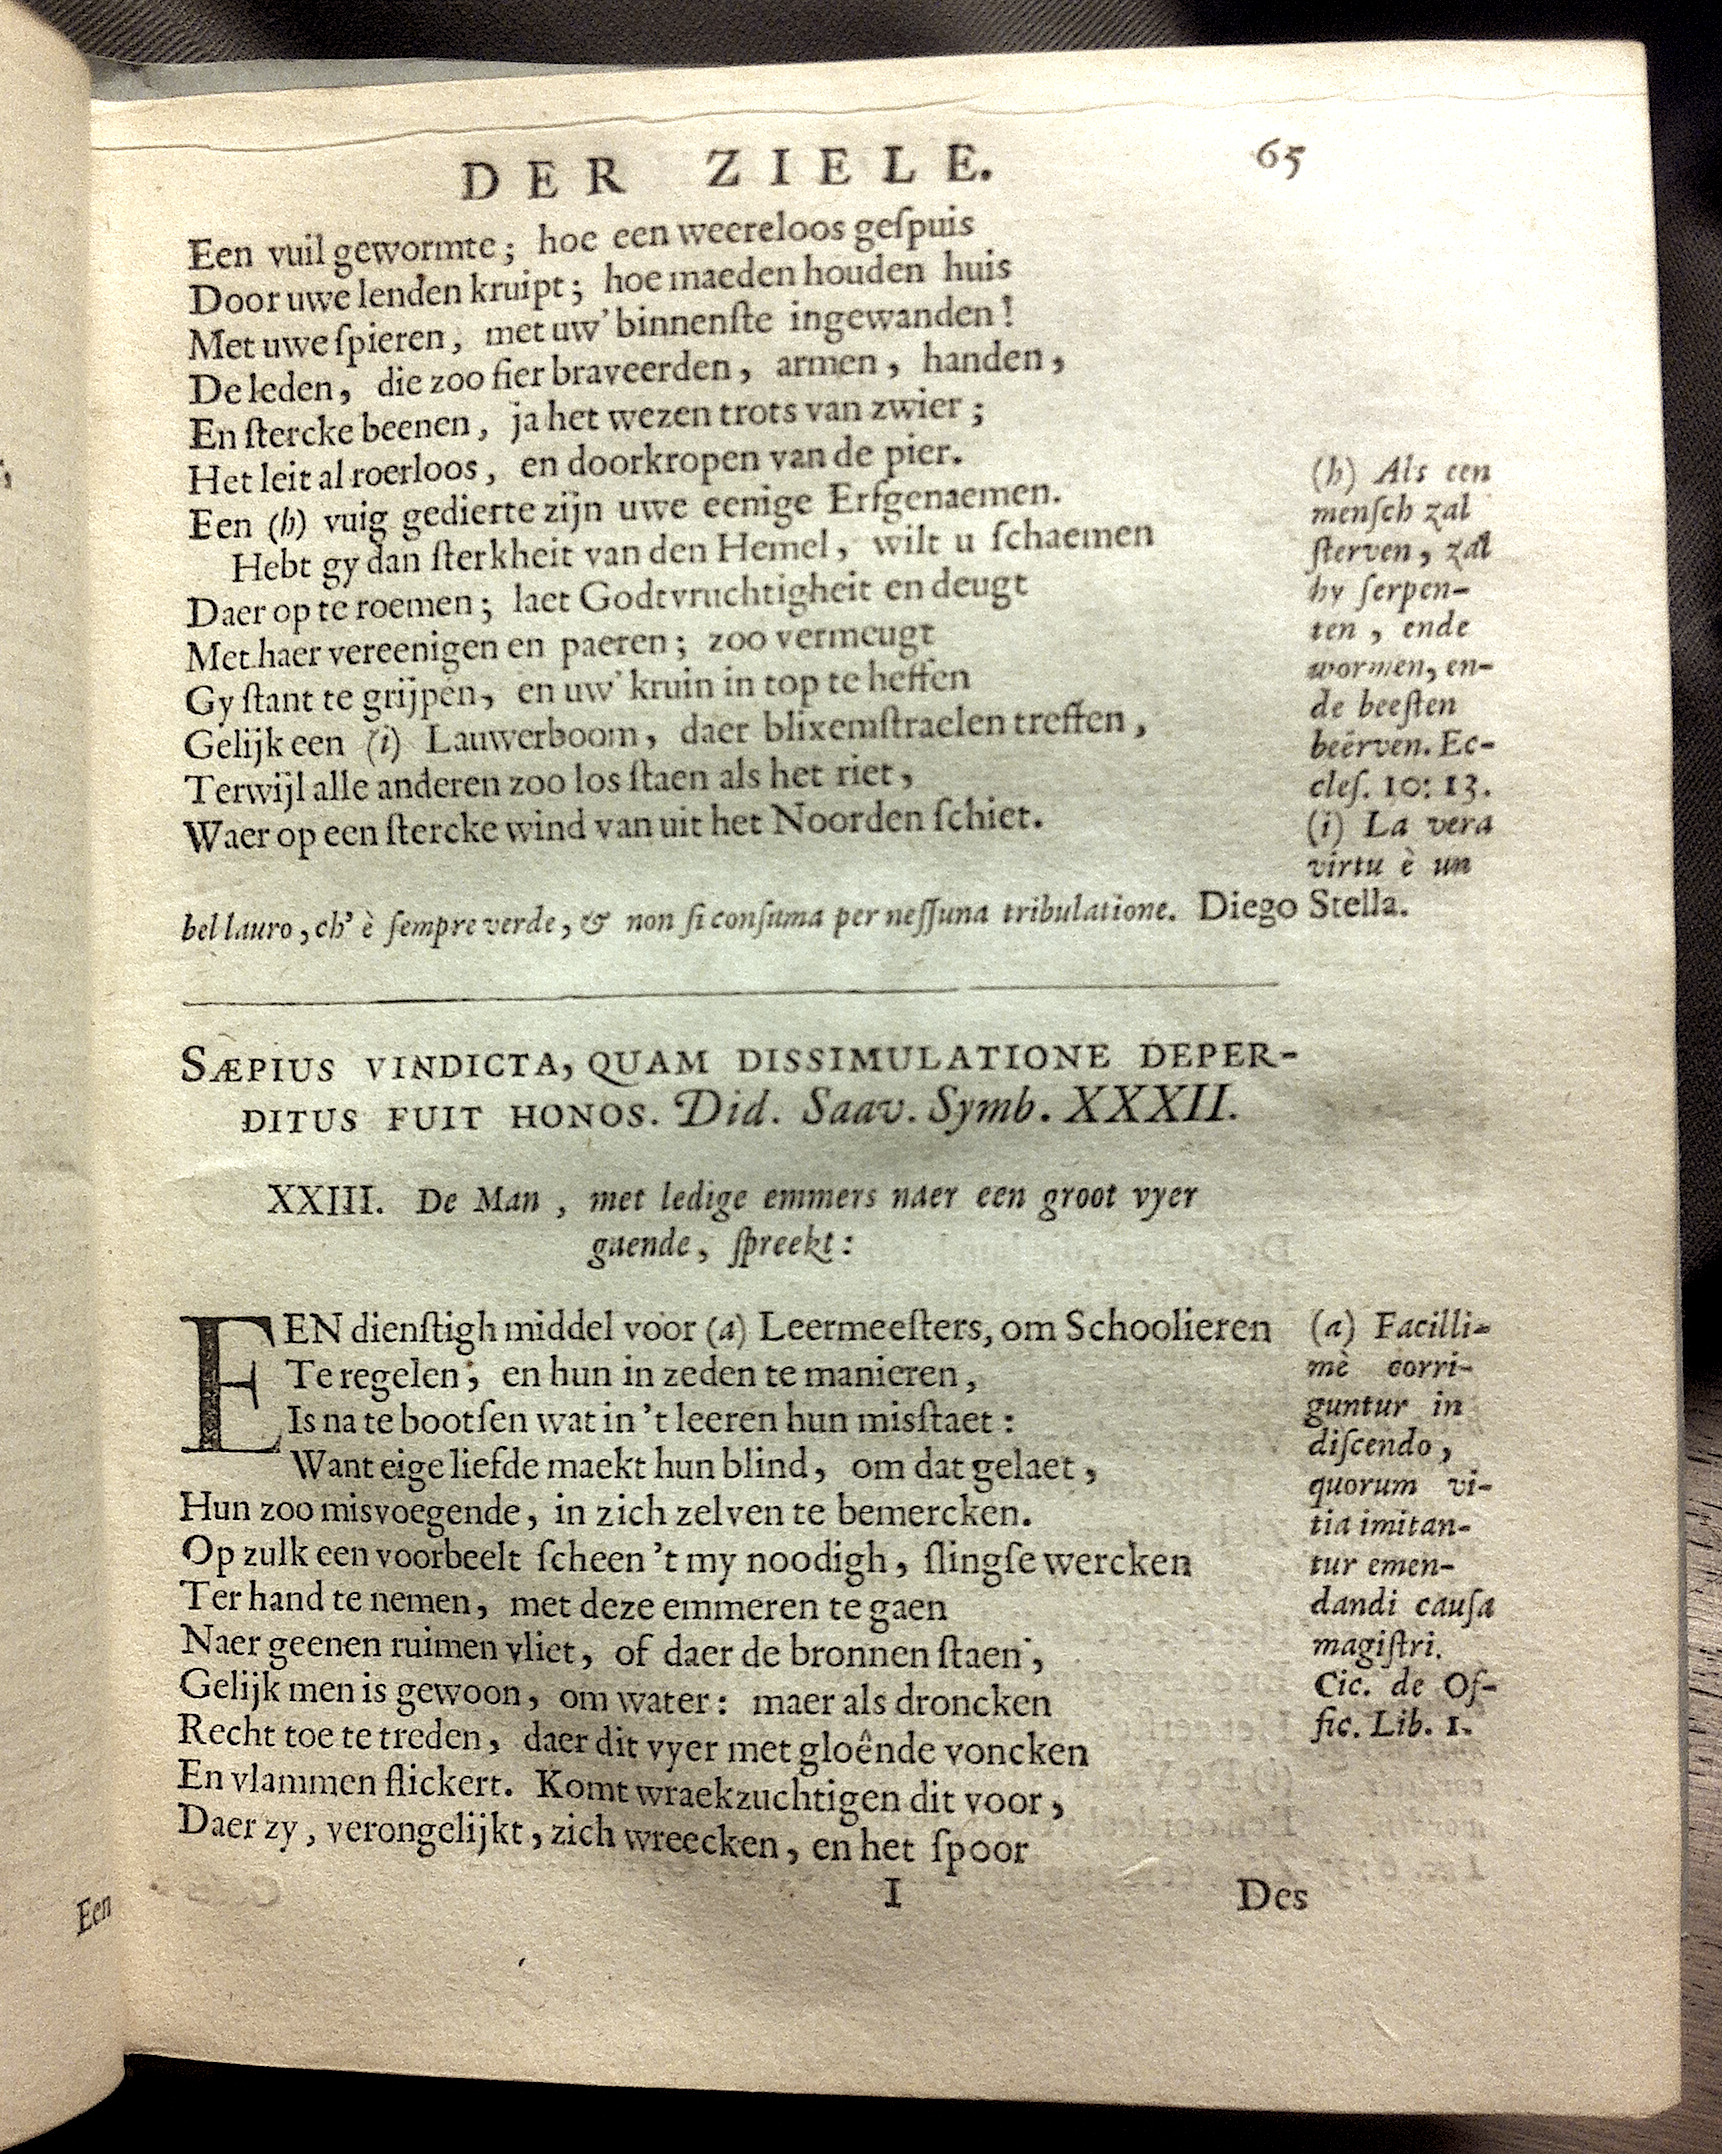 DER ZIELE. 65
Een vuil gewormte; hoe een weereloos geſpuis
Door uwe lenden kruipt; hoe maeden houden huis
Met uwe ſpieren, met uw' binnenſte ingewanden!
De leden, die zoo fier braveerden, armen, handen,
En ſtercke beenen, ja het wezen trots van zwier;
Het leit al roerloos, en doorkropen van de pier.
Een (h) vuig gedierte zijn uwe eenige Erfgenaemen.
Hebt gy dan ſterkheit van den Hemel, wilt u ſchaemen
Daer op te roemen; laet Godtvruchtigheit en deugt
Met haer vereenigen en paeren; zoo vermeugt
Gy ſtant te grijpen, en uw' kruin in top te heffen
Gelijk een (i) Lauwerboom, daer blixemſtraelen treffen,
Terwijl alle anderen zoo los ſtaen als het riet,
Waer op een ſtercke wind van uit het Noorden ſchiet.
(h) Als een
menſch zal
ſterven, zal
hy ſerpen-
ten, ende
wormen, en-
de beeſten
beërven. Ec-
cleſ. 10: 13.
(i) La vera
virtu è un
bel lauro, ch' è ſempre verde, & non ſi conſuma per neſſuna tribulatione. Diego Stella.
SÆPIUS VINDICTA, QUAM DISSIMULATIONE DEPER-
DITUS FUIT HONOS. Did. Saav. Symb. XXXII.
XXIII. De Man, met ledige emmers naer een groot vyer
gaende, ſpreekt:
EEN dienſtigh middel voor (a) Leermeeſters, om Schoolieren
Te regelen; en hun in zeden te manieren,
Is na te bootſen wat in 't leeren hun misſtaet:
Want eige liefde maekt hun blind, om dat gelaet,
Hun zoo misvoegende, in zich zelven te bemercken.
Op zulk een voorbeelt ſcheen 't my noodigh, ſlingſe wercken
Ter hand te nemen, met deze emmeren te gaen
Naer geenen ruimen vliet, of daer de bronnen ſtaen,
Gelijk men is gewoon, om water: maer als droncken
Recht toe te treden, daer dit vyer met gloênde voncken
En vlammen flickert. Komt wraekzuchtigen dit voor,
Daer zy, verongelijkt, zich wreecken, en het ſpoor
(a) Facilli-
mè corri-
guntur in
diſcendo,
quorum vi-
tia imitan-
tur emen-
dandi cauſa
magiſtri.
Cic. de Of-
fic. Lib. 1.
I Des
Een